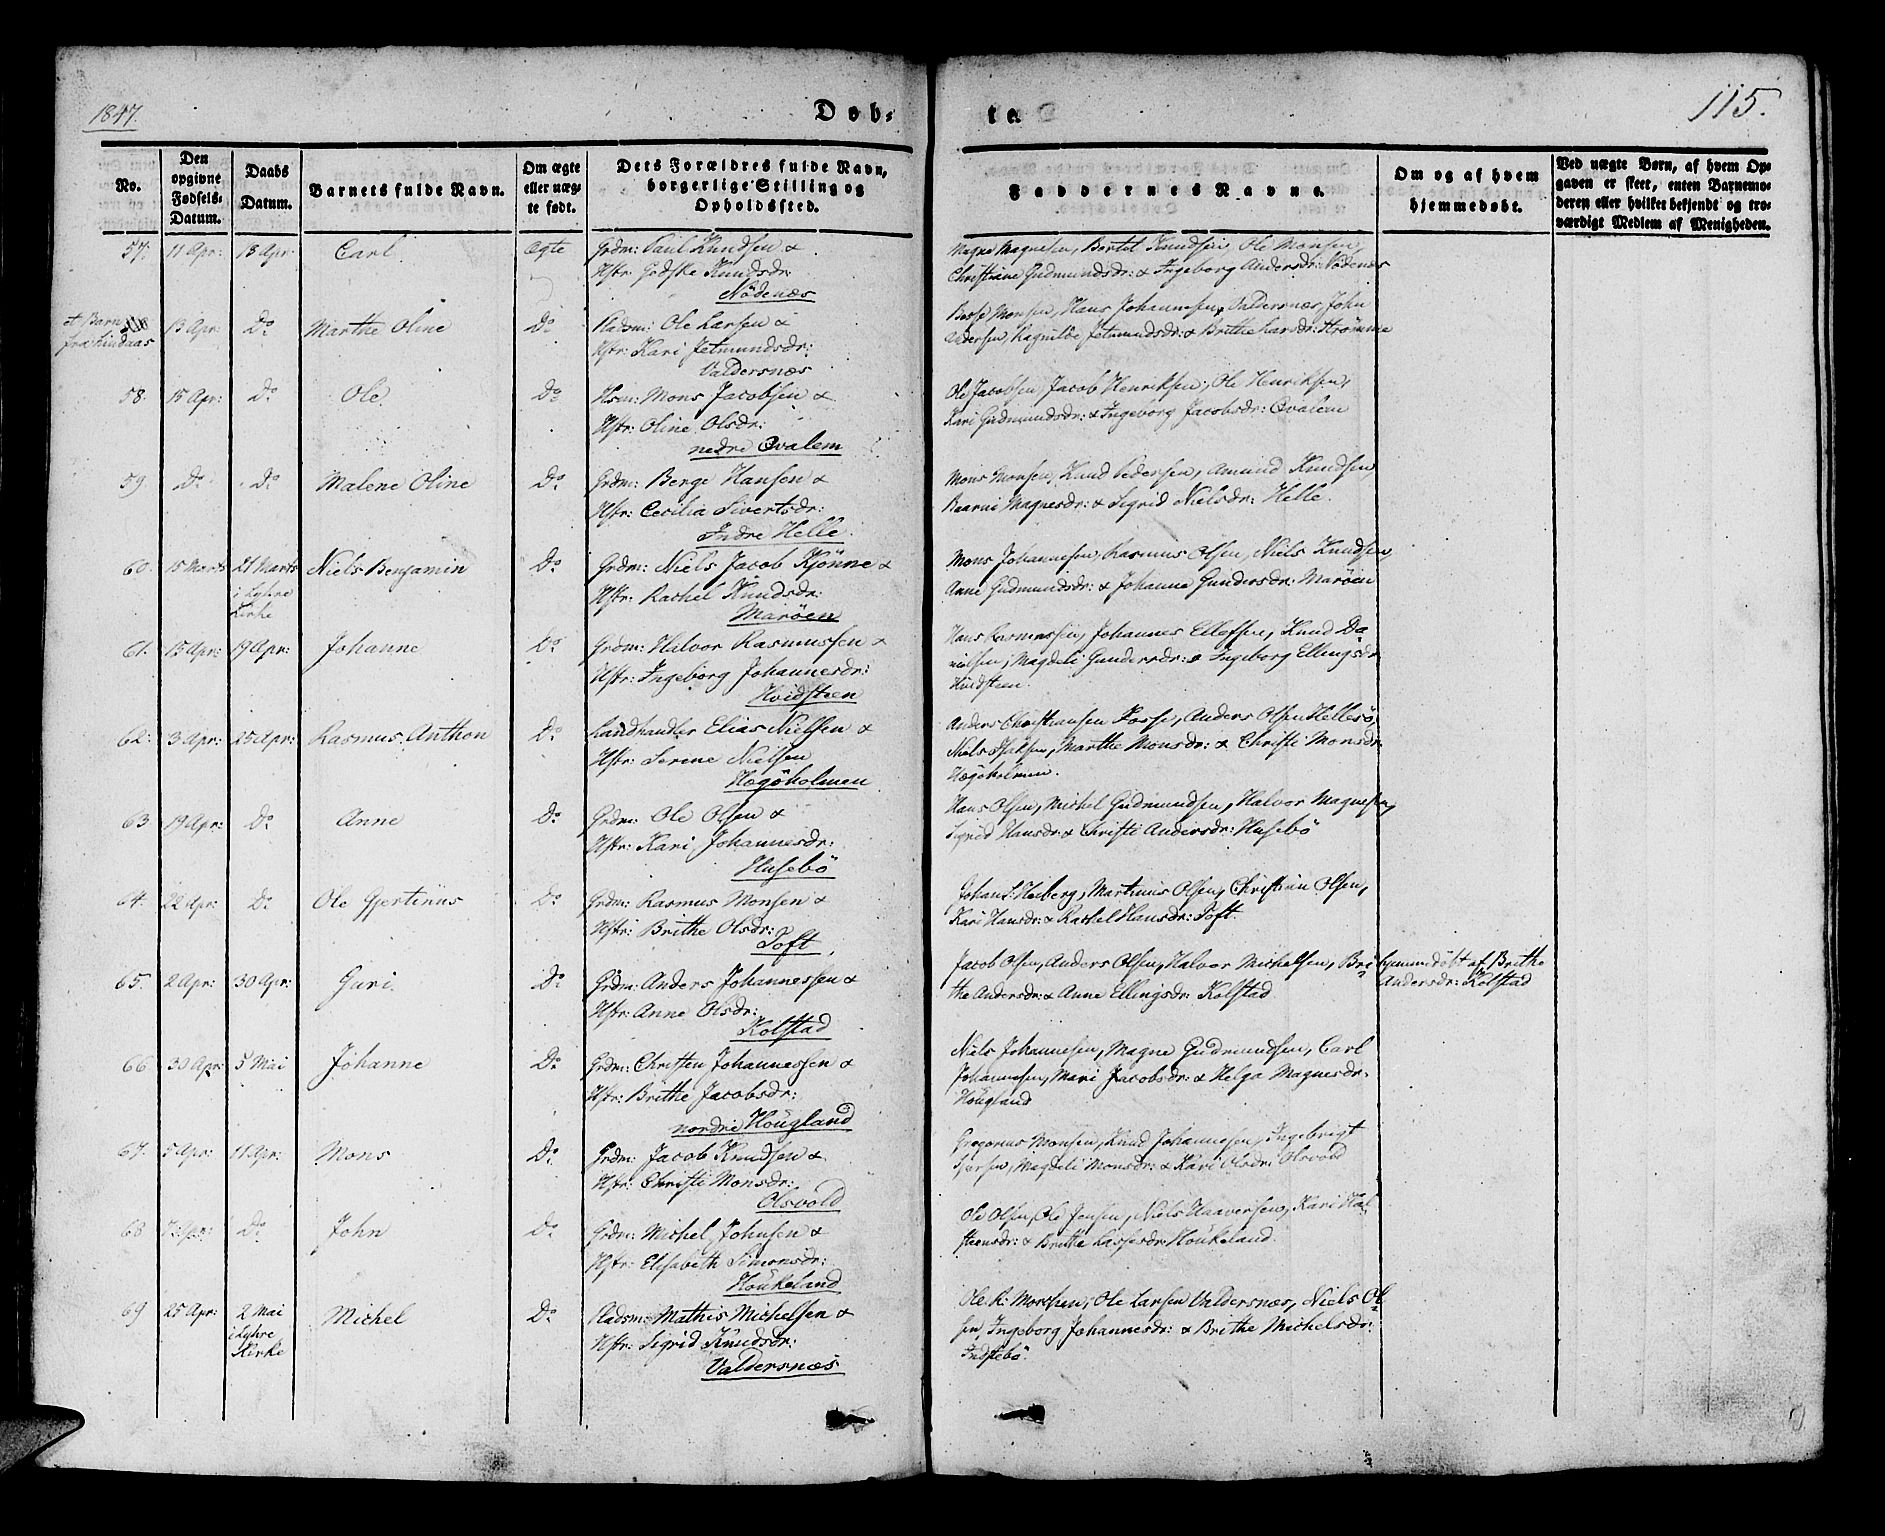 1847.
Døb-
te.
115.
No.
Den opgivne Fødsels-Datum.
Daabs Datum.
Barnets fulde Navn.
Om ægte eller uæg-te født.
Dets Forældres fulde Navn, borgerlige Stilling og Opholdssted.
Faddernes Navne.
Om og af hvem hjemmedøbt.
Ved uægte Børn, af hvem Op-gaven er skeet, enten Barnemo-deren eller hvilket bekjendt og tro-værdigt Medlem af Menigheden.
57. 11 Apr: 18 Apr: Carl Ægte Grdm: Paul Knudsen &
Hstr: Gjdske Knudsdr:
Nödenæs
Magne Magnesen, Bertel Knudsen, Ole Monsen,
Christiane Gudmundsdr: & Ingeborg Andersdr: Nödenæs
et Barn
fra Lindaas
13 Apr: Do Marthe Oline Do Kadsm: Ole Larsen &
Hstr: Kari Jetmundsdr:
Valdersnæs
Mönsen, Hans Johannesen, Valdersnæs, John
Pedersen, Ragnilde Jetmundsdr: & Brithe Larsdr: Strömme
58. 15 Apr: Do Ole Do Hsm: Mons Jacobsen &
Hstr: Oline Olsdr:
nedre Qvalem
Ole Jacobsen, Jacob Henriksen, Ole Henriksen,
Kari Gudmundsdr: & Ingeborg Jacobsdr: Qvalem
59 Do Do Malene Oline Do Grdm: Berge Hansen &
Hstr: Cecilia Sivertsdr:
Indre Helle
Mons Monsen, Knud Pedersen, Amund Knudsen,
Magnesdr: & Sigrid Nielsdr: Helle.
60. 15 Marts 21 Marts Niels Benjamin Do Grdm: Niels Jacob Kjönne &
i Lyhre
Kirke
Hstr: Rachel Knudsdr:
Maröen
Mons Johannesen, Rasmus Olsen, Niels Knudsen,
Anne Gudmundsdr: & Johanne Gundersdr: Maröen
61. 15 Apr: 19 Apr: Johanne Do Grdm: Halvor Rasmussen &
Hstr: Ingeborg Johannesdr:
Hvidsteen
Hans Rasmussen, Johannes Ellefsen, Knud Da-
nielsen, Magdeli Gundersdr: & Ingeborg Ellingsdr:
Hvidsteen.
62. 3 Apr: 25 Apr: Rasmus Anthon Do Landhandler Elias Nielsen &
Hstr: Serine Nielsen
Hægöholmen
Anders Christiansen Fosse, Anders Olsen Hellesö,
Niels Isaksen, Marthe Monsdr: & Christi Monsdr:
Hægöholmen.
63 19 Apr: Do Anne Do Grdm: Ole Olsen &
Hstr: Kari Johannesdr:
Husebö
Hans Olsen, Michel Gudmundsen, Halvor Magnesen,
Sigrid Hansdr: & Christi Andersdr: Husebö
64. 22 Apr: Do Ole Gjertinus Do Grdm: Rasmus Monsen &
Hstr: Brithe Olsdr:
Toft.
Johan S. Heiberg, Martinus Olsen, Christian Olsen,
Kari Hansdr: & Rachel Hansdr: Toft.
65. 2 Apr: 30 Apr: Guri. Do Grdm: Anders Johannessen &
Hstr: Anne Olsdr:
Kolstad
Jacob Olsen, Anders Olsen, Halvor Michelsen, Bri-
the Andersdr: & Anne Ellingsdr: Kolstad
hjemmedöbt af Brithe
Andersdr: Kolstad
66 30 Apr: 5 Mai Johanne Do Grdm: Christen Johannessen &
Hstr: Brithe Jacobsdr:
nordre Hougland
Niels Johannesen, Magne Gudmundsen, Carl
Johannesen, Mari Jacobsdr: & Helga Magnesdr:
Hougland
67. 5 Apr: 11 Apr: Mons Do Grdm: Jacob Knudsen &
Hstr: Christi Monsdr:
Olsvold
Gregorius Monsen, Knud Johannesen, Ingebrigt
Iversen, Magdeli Monsdr: & Kari Olsdr: Olsvold
68 7 Apr: Do John Do Grdm: Michel Johnsen &
Hstr: Elisabeth Simonsdr:
Houkeland
Ole Olsen, Ole Jensen, Niels Haaversen, Kari Hal-
steensdr: & Brithe Lassesdr: Houkeland.
69 25 Apr: 2 Mai Michel Do Kadsm: Mathis Michelsen &
i Lyhre
Kirke
Hstr: Sigrid Knudsdr:
Valdersnæs
Ole R. Monsen, Ole Larsen Valdersnæs, Niels Ol-
sen, Ingeborg Johannesdr: & Brithe Michelsdr:
Indstebö.